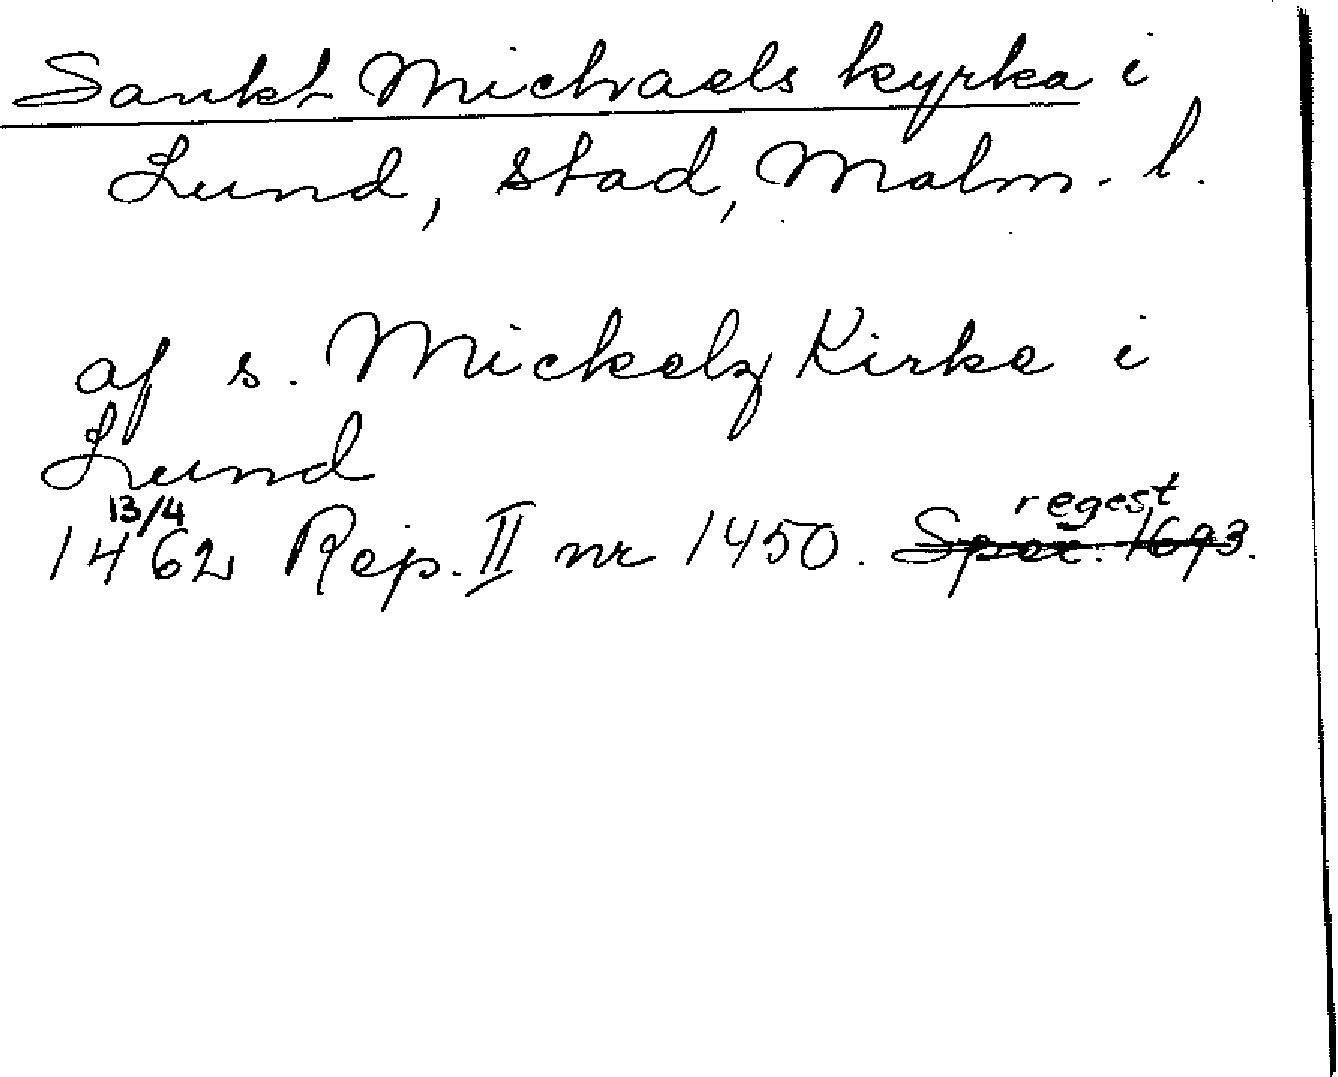 Sankt Michaels kyrka i
Lund, stad, Malm. l.
af s. Mickelz Kirke i
Lund
13/4 regest
1462 Rep. II nr 1450. Spec. 1693.